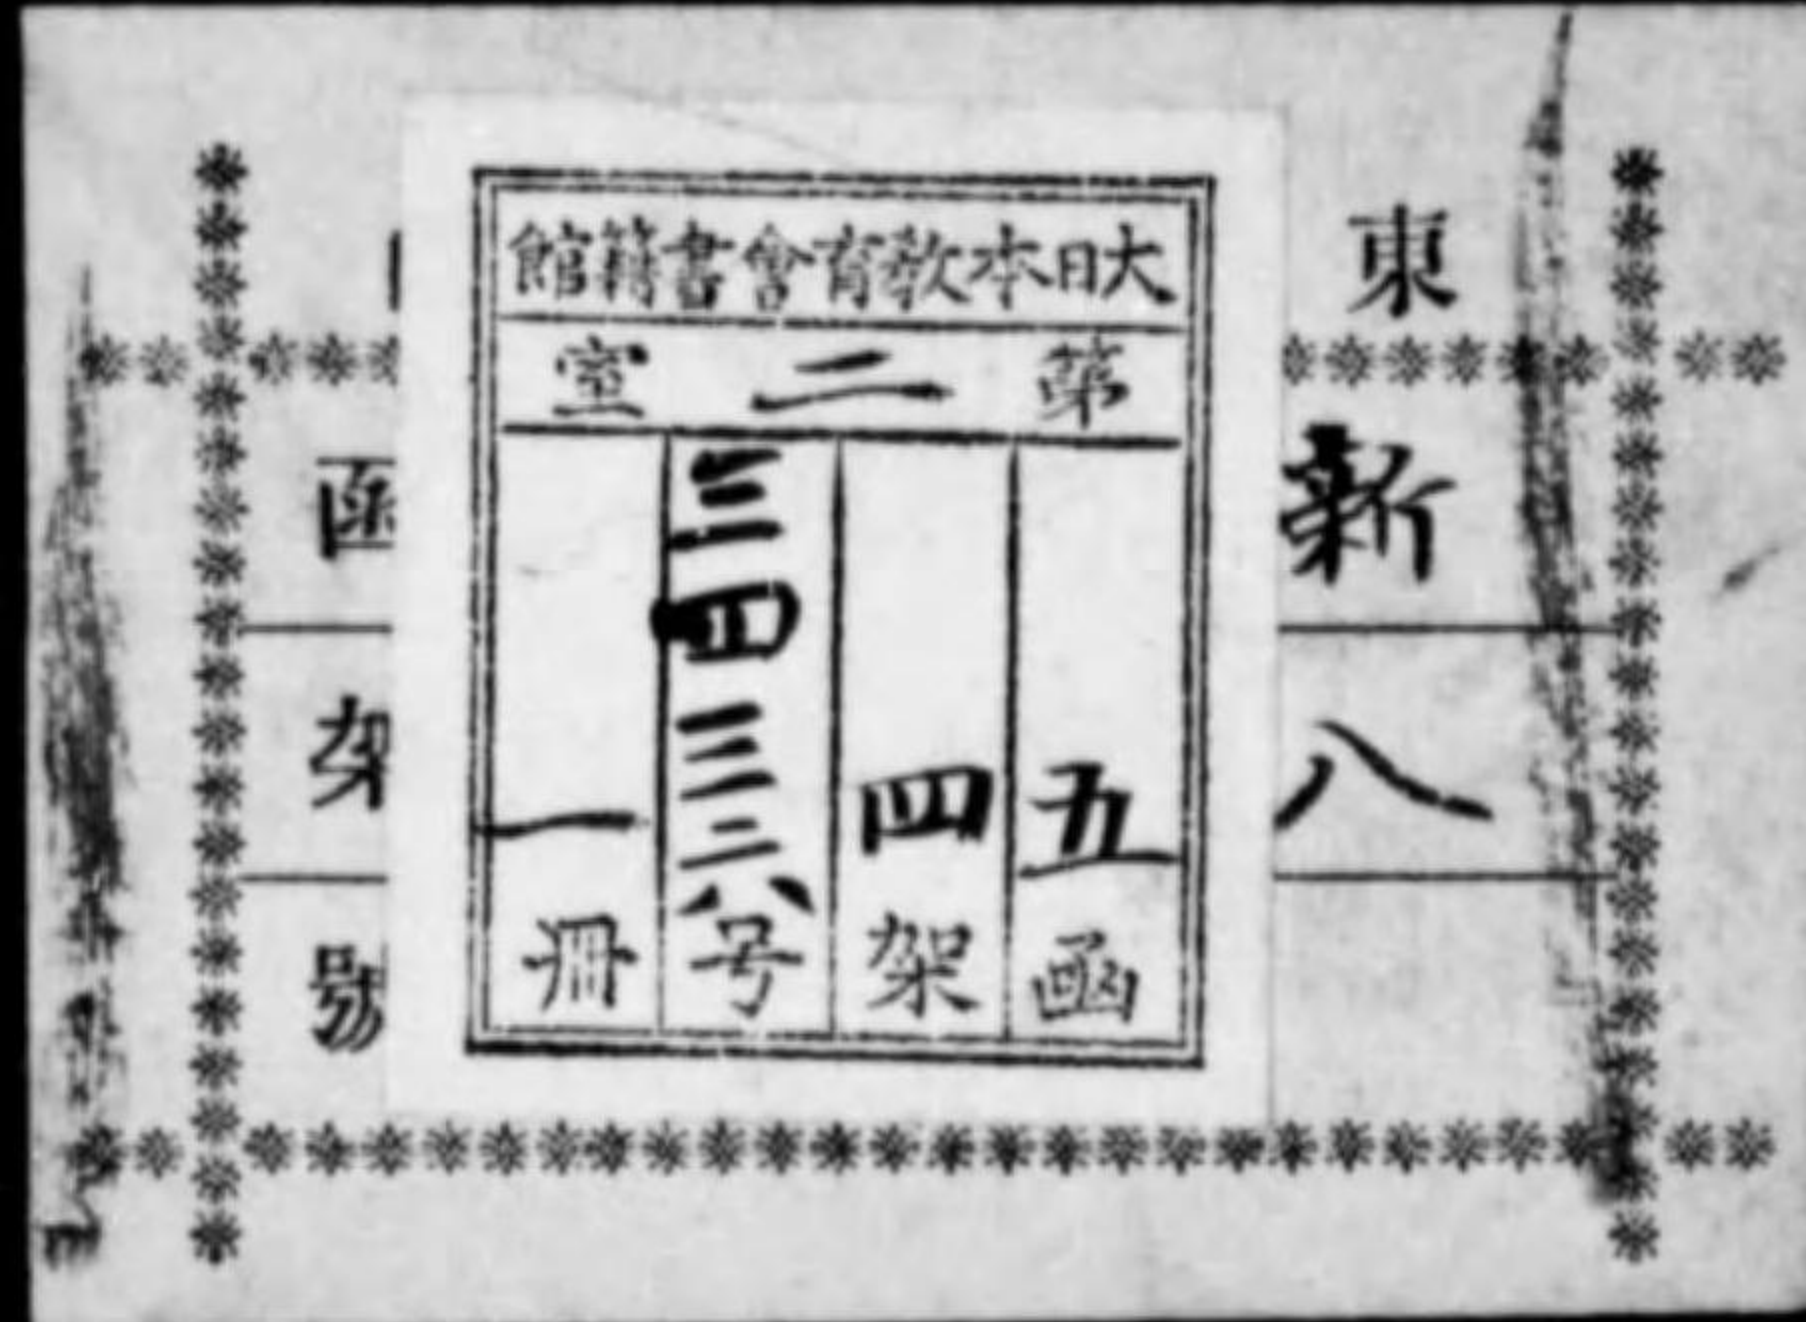 東
新 函
八 架
號
大日本教育會書籍館
第二室
五函
四架
三四三二八号
一冊